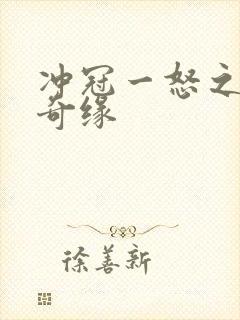 冲冠一怒之
奇缘
徐善新